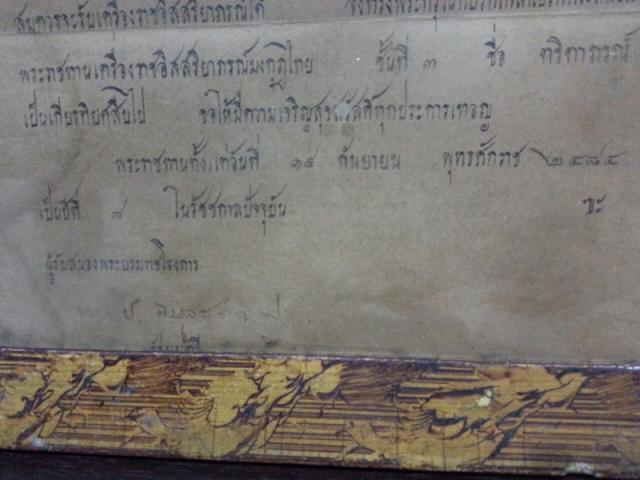 สมควรจะรับเครื่องราชอิสสริยาภรณ์ได้
พระราชทานเครื่องราชอิสสริยาภรณ์มงกุฎไทย ชั้นที่ ๓ ชื่อ ตริตาภรณ์
เป็นเกียรติยศสืบไป ขอให้มีความเจริญสุขสวัสดิ์ทุกประการเทอญ
พระราชทานตั้งแต่วันที่ ๑๙ กันยายน พุทธศักราช ๒๔๘๔
เป็นปีที่ ๘ ในรัชชกาลปัจจุบัน ฯะ
ผู้รับสนองพระบรมราชโองการ